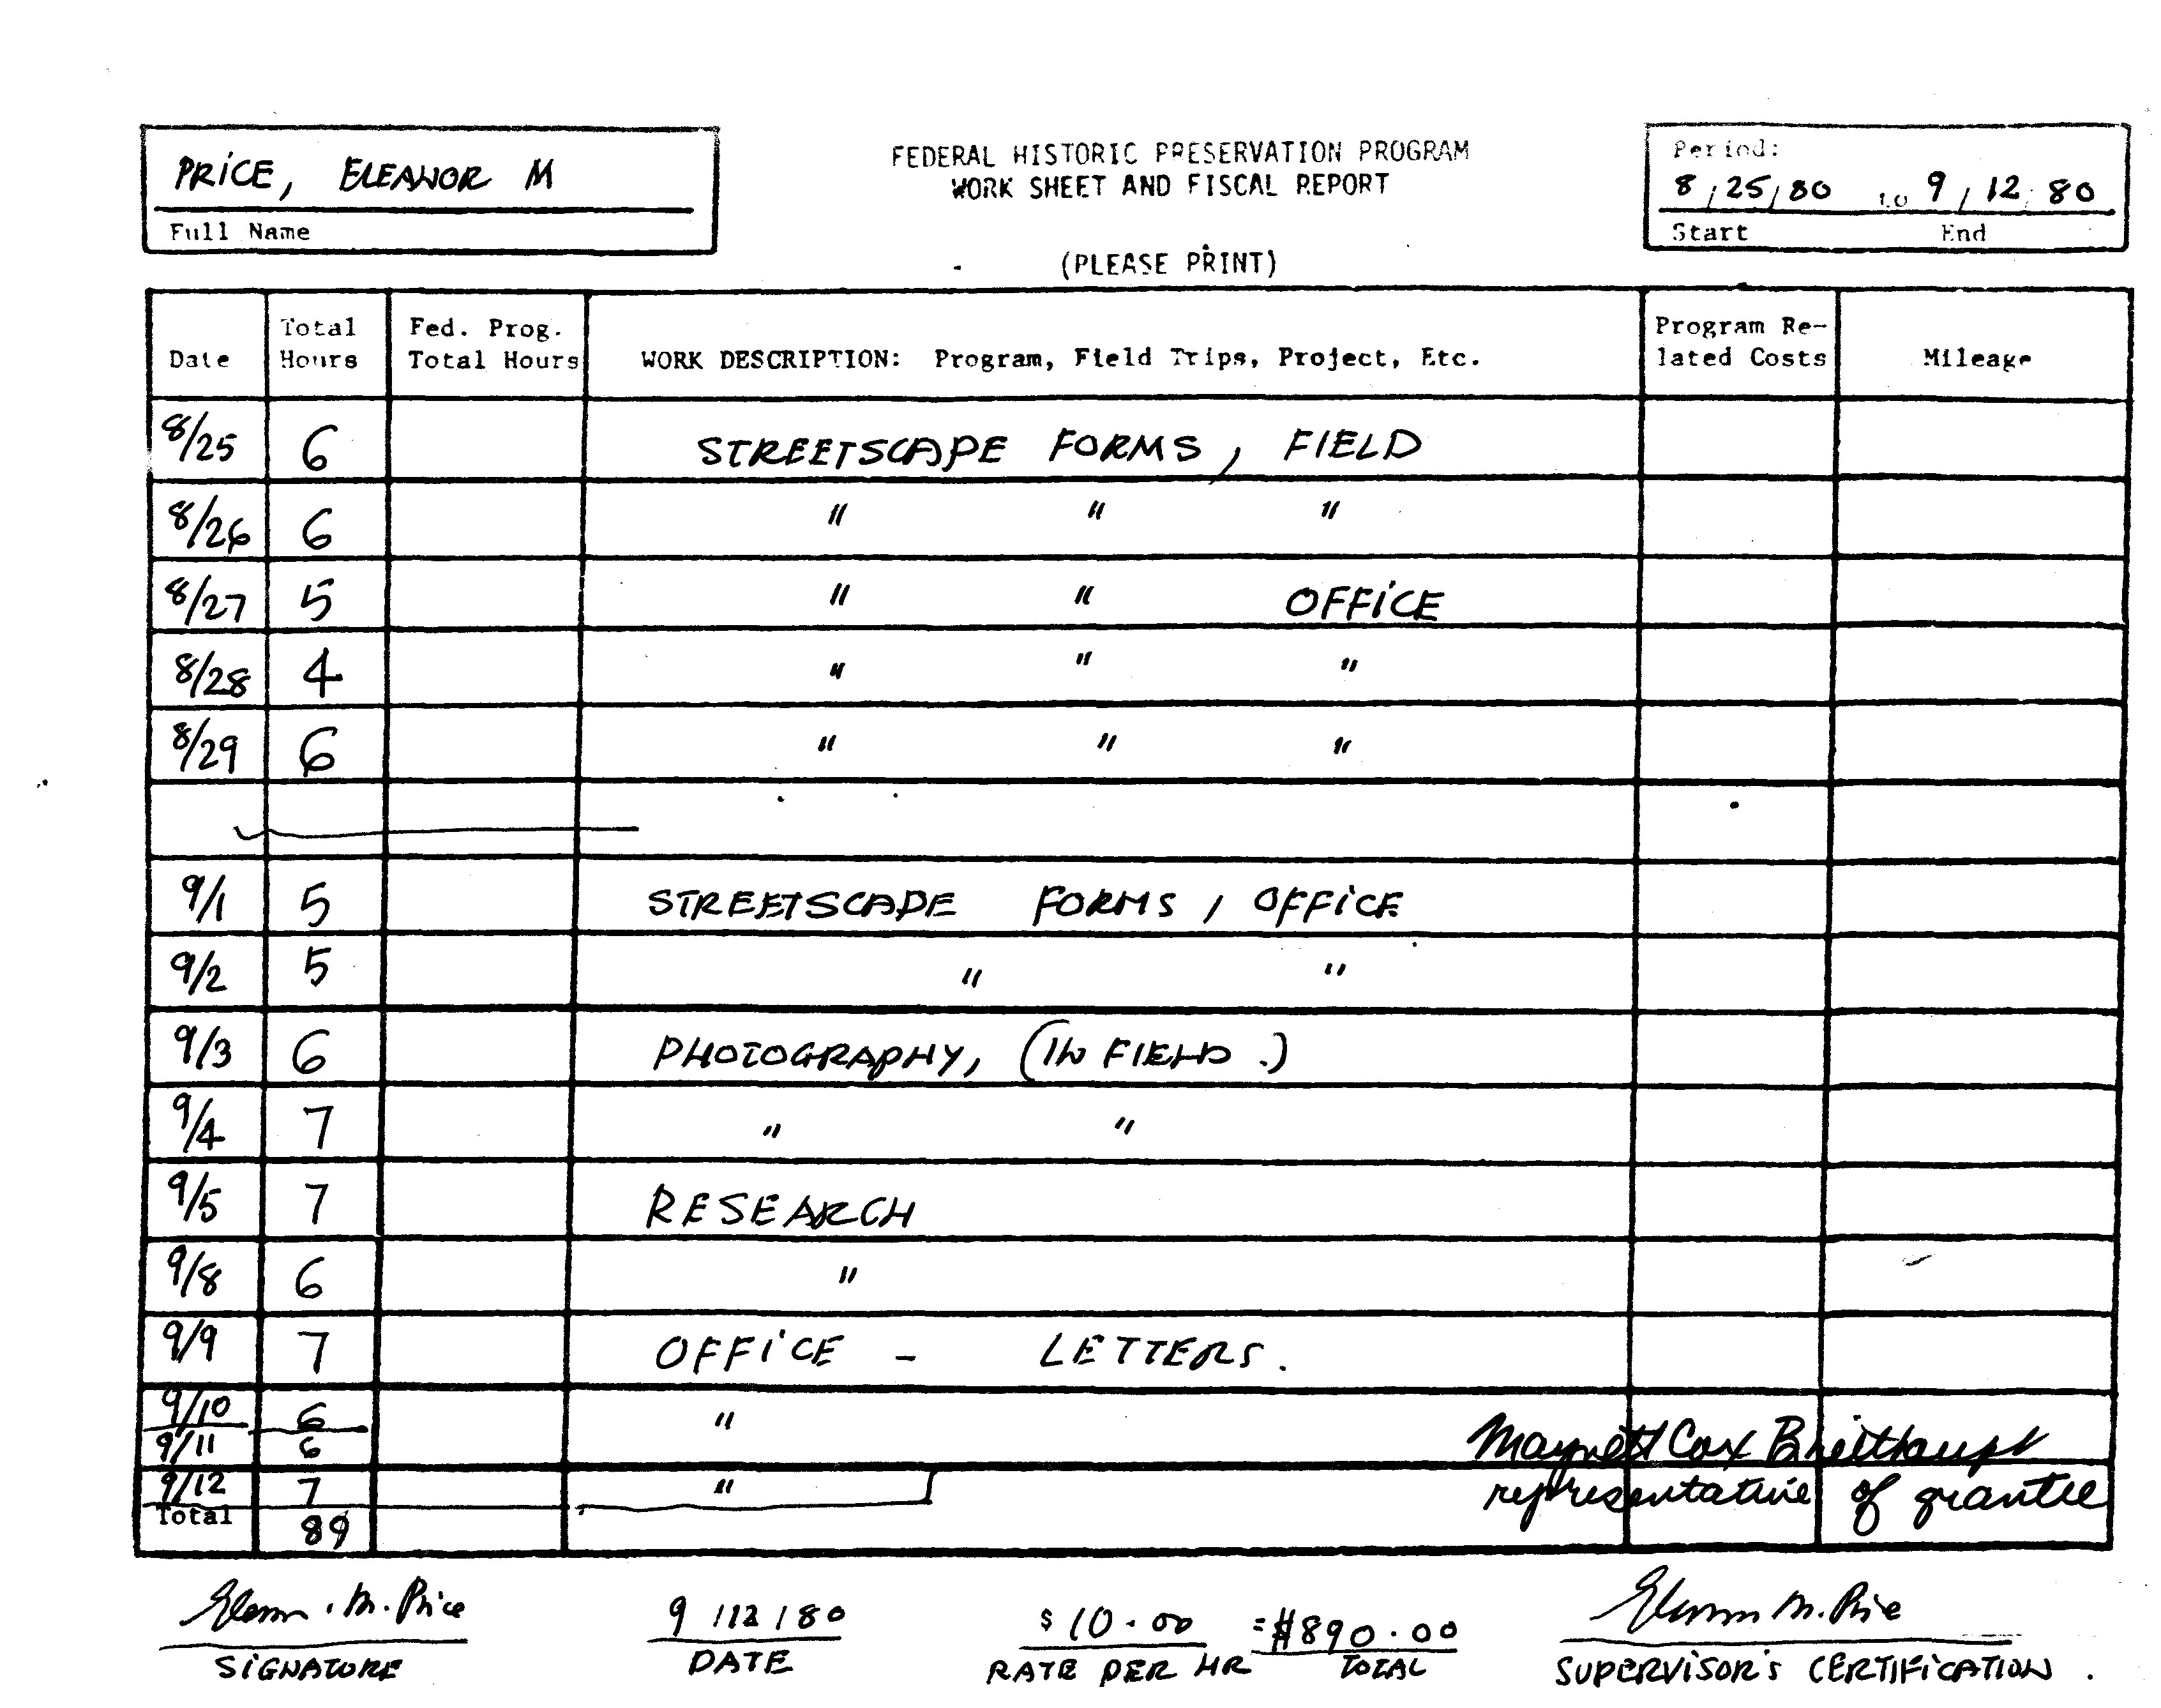 PRICE, ELEANOR M
Full Name
FEDERAL HISTORIC PRESERVATION PROGRAM
WORK SHEET AND FISCAL REPORT
(PLEASE PRINT)
Period:
8/25/80 to 9/12/80
Start End
Date Total Hours Fed. Prog. Total Hours WORK DESCRIPTION: Program, Field Trips, Project, Etc. Program Related Costs Mileage
8/25 6 STREETSCAPE FORMS, FIELD
8/26 6 " " "
8/27 5 " " OFFICE
8/28 4 " " "
8/29 6 " " "
9/1 5 STREETSCAPE FORMS, OFFICE
9/2 5 " "
9/3 6 PHOTOGRAPHY, (IN FIELD.)
9/4 7 " "
9/5 7 RESEARCH
9/8 6 "
9/9 7 OFFICE - LETTERS.
9/10 6 "
9/11 6
Maynett Cox Breithaupt
9/12 7 "
representative of grantee
Total 89
Eleanor M. Price 9/12/80 $10.00 =$890.00 Eleanor M. Price
SIGNATURE DATE RATE PER HR TOTAL SUPERVISOR'S CERTIFICATION.